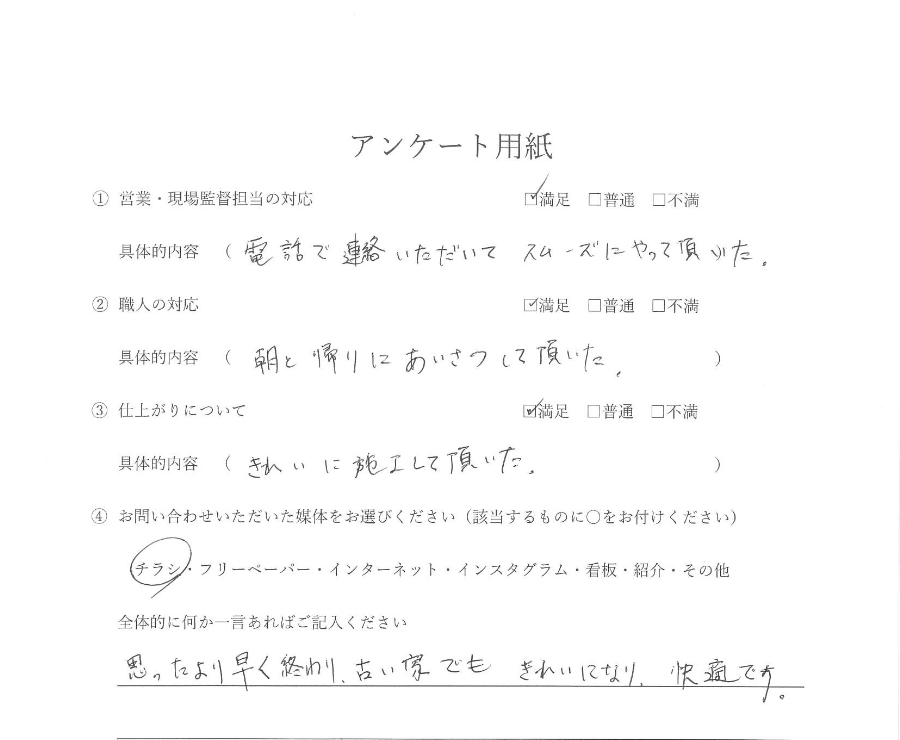 アンケート用紙
① 営業・現場監督担当の対応 ☑満足 □普通 □不満
具体的内容 （ 電話で連絡いただいて スムーズにやって頂いた。
② 職人の対応 ☑満足 □普通 □不満
具体的内容 （ 朝と帰りにあいさつして頂いた。 ）
③ 仕上がりについて ☑満足 □普通 □不満
具体的内容 （ きれいに施工して頂いた。 ）
④ お問い合わせいただいた媒体をお選びください（該当するものに○をお付けください）
チラシ・フリーペーパー・インターネット・インスタグラム・看板・紹介・その他
全体的に何か一言あればご記入ください
思ったより早く終わり、古い家でも きれいになり、快適です。